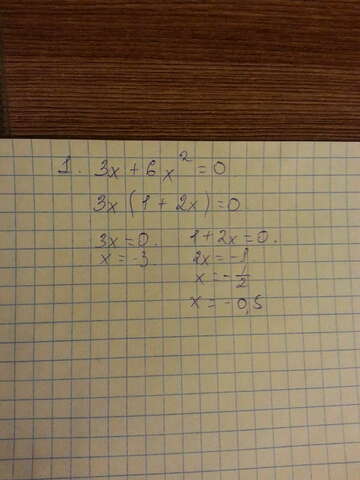 1. 3x + 6x² = 0
3x (1 + 2x) = 0
3x = 0.
x = -3.
1 + 2x = 0.
2x = -1
x = -1/2
x = -0,5